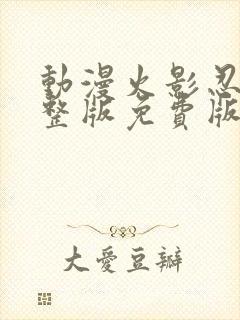 動漫火影忍
整版免費版
大愛豆瓣